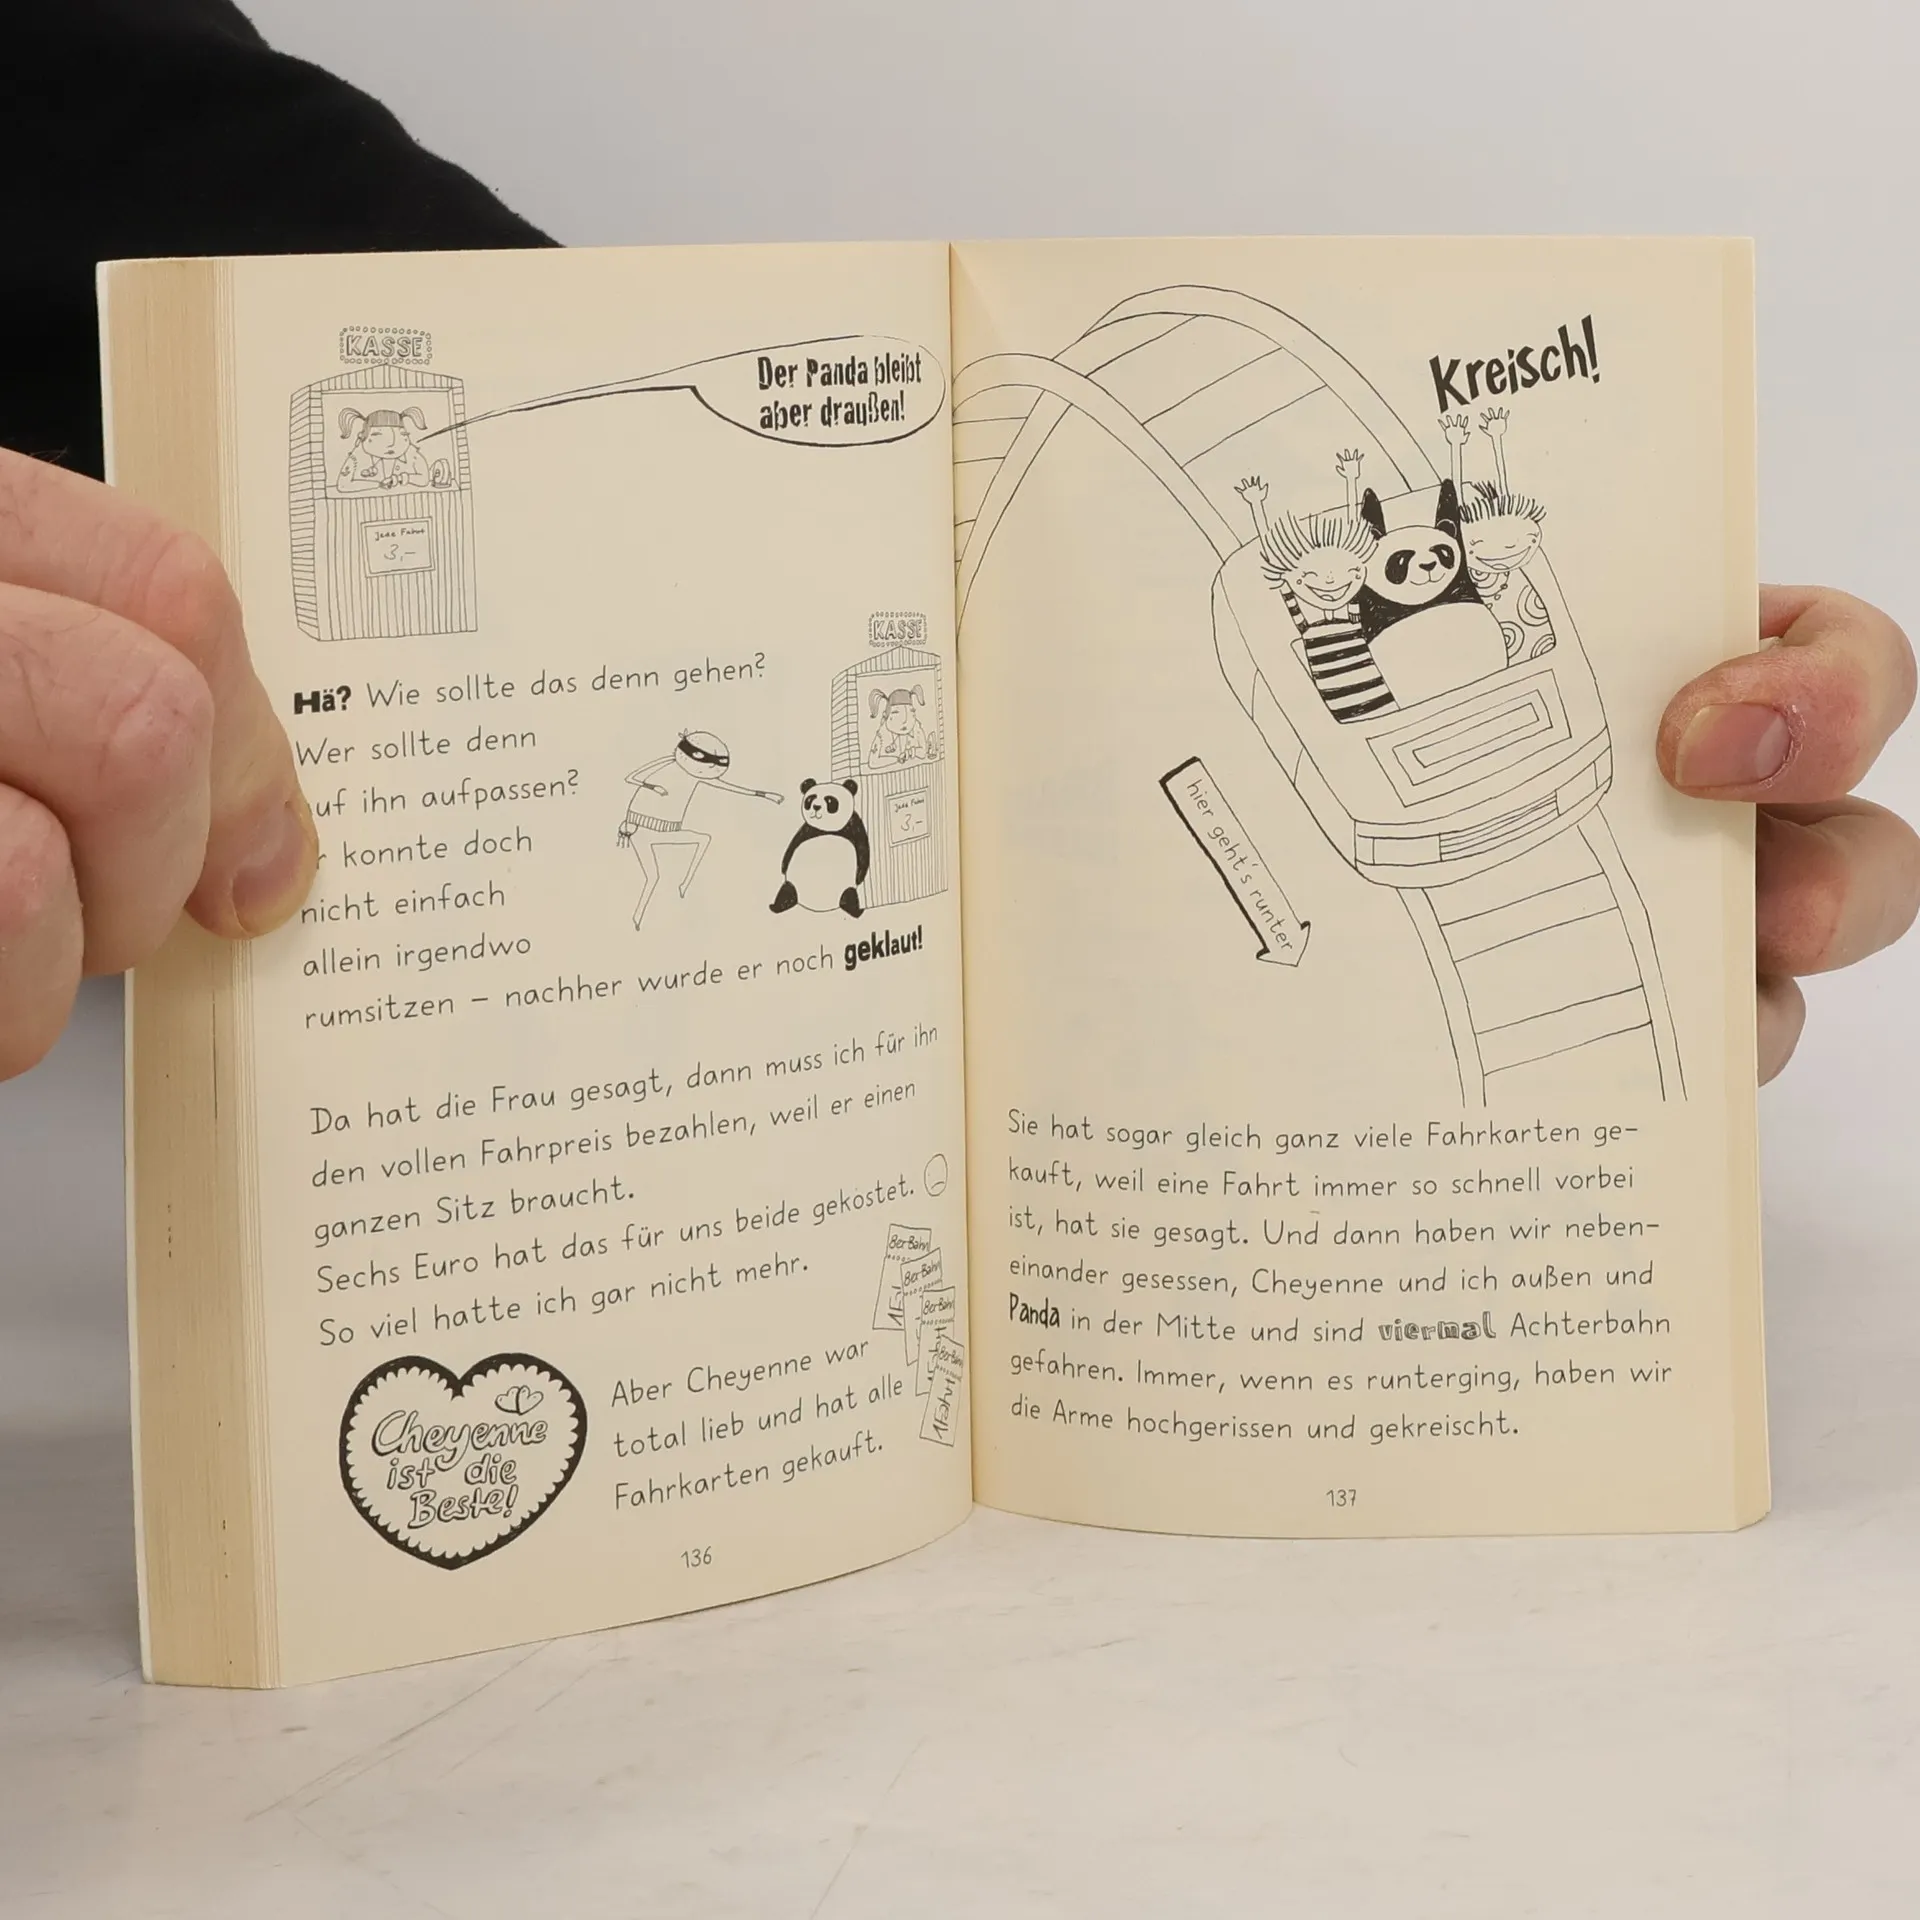 KASSE
Der Panda bleibt
aber draußen!
Jede Fahrt
3,-
KASSE
Jede Fahrt
3,-
Hä? Wie sollte das denn gehen?
Wer sollte denn
uf ihn aufpassen?
r konnte doch
nicht einfach
allein irgendwo
rumsitzen – nachher wurde er noch geklaut!
Da hat die Frau gesagt, dann muss ich für ihn
den vollen Fahrpreis bezahlen, weil er einen
ganzen Sitz braucht.
Sechs Euro hat das für uns beide gekostet.
So viel hatte ich gar nicht mehr.
8er Bahn
8er Bahn
8er Bahn
8er Bahn
1 Fahrt
Cheyenne
ist die
Beste!
Aber Cheyenne war
total lieb und hat alle
Fahrkarten gekauft.
136
Kreisch!
hier geht's runter
Sie hat sogar gleich ganz viele Fahrkarten ge-
kauft, weil eine Fahrt immer so schnell vorbei
ist, hat sie gesagt. Und dann haben wir neben-
einander gesessen, Cheyenne und ich außen und
Panda in der Mitte und sind viermal Achterbahn
gefahren. Immer, wenn es runterging, haben wir
die Arme hochgerissen und gekreischt.
137